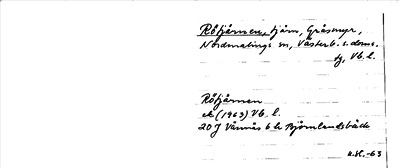 Rötjärnen, tjärn, Gräsmyr,
Nordmalings sn, Västerb. s. doms.
tg, Vb. l.
Rötjärnen
ek (1963) Vb. l.
20 J Vännäs 6 h Björnlandsbäck
-63